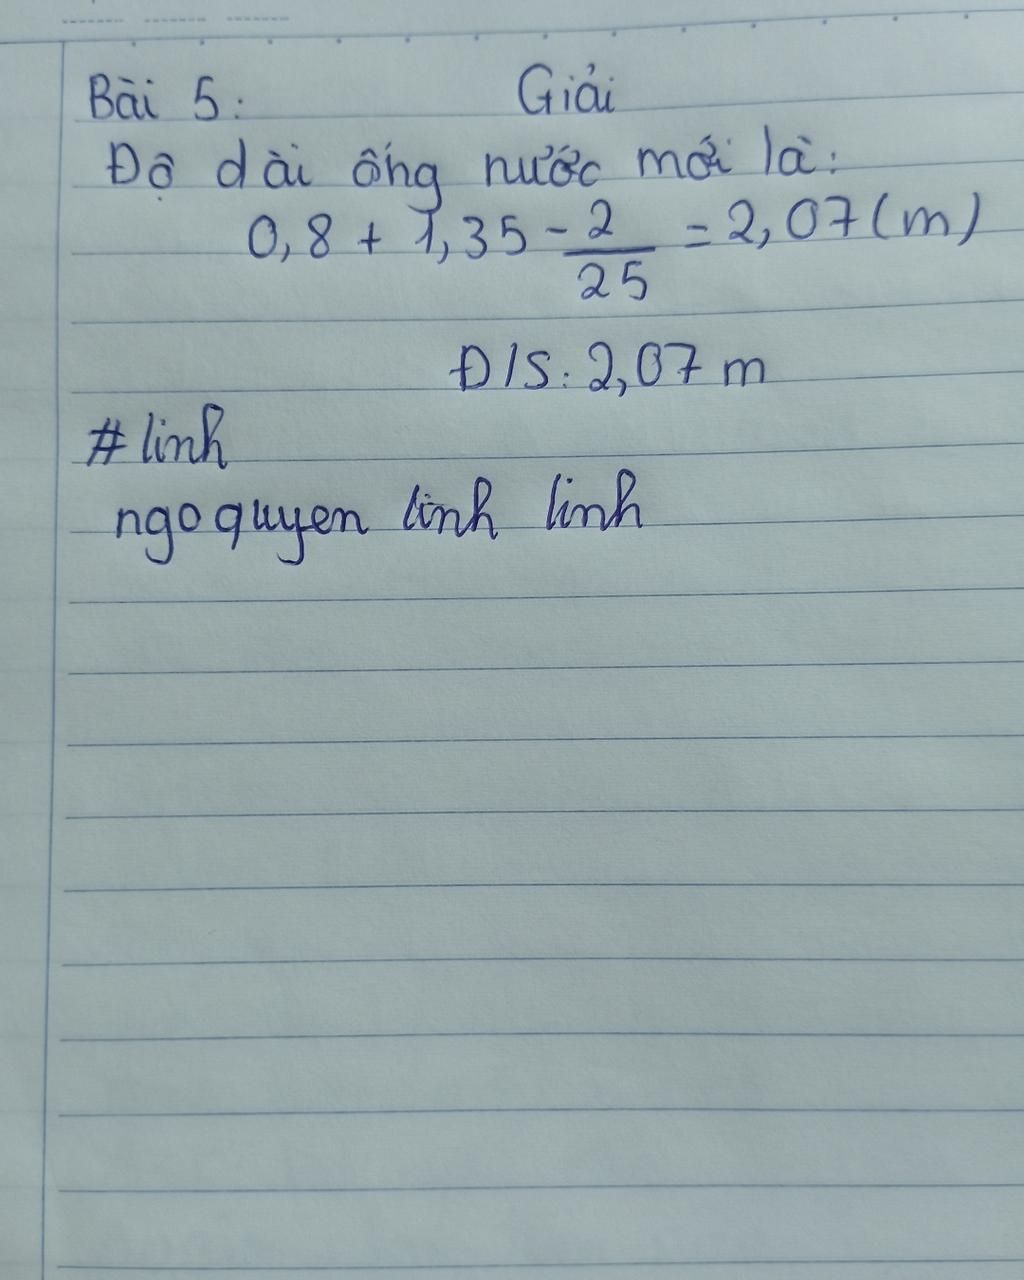 Bài 5: Giải
Độ dài ống nước mới là:
0,8 + 1,35 - 2/25 = 2,07 (m)
Đ/S: 2,07 m
# linh
ngoquyen linh linh